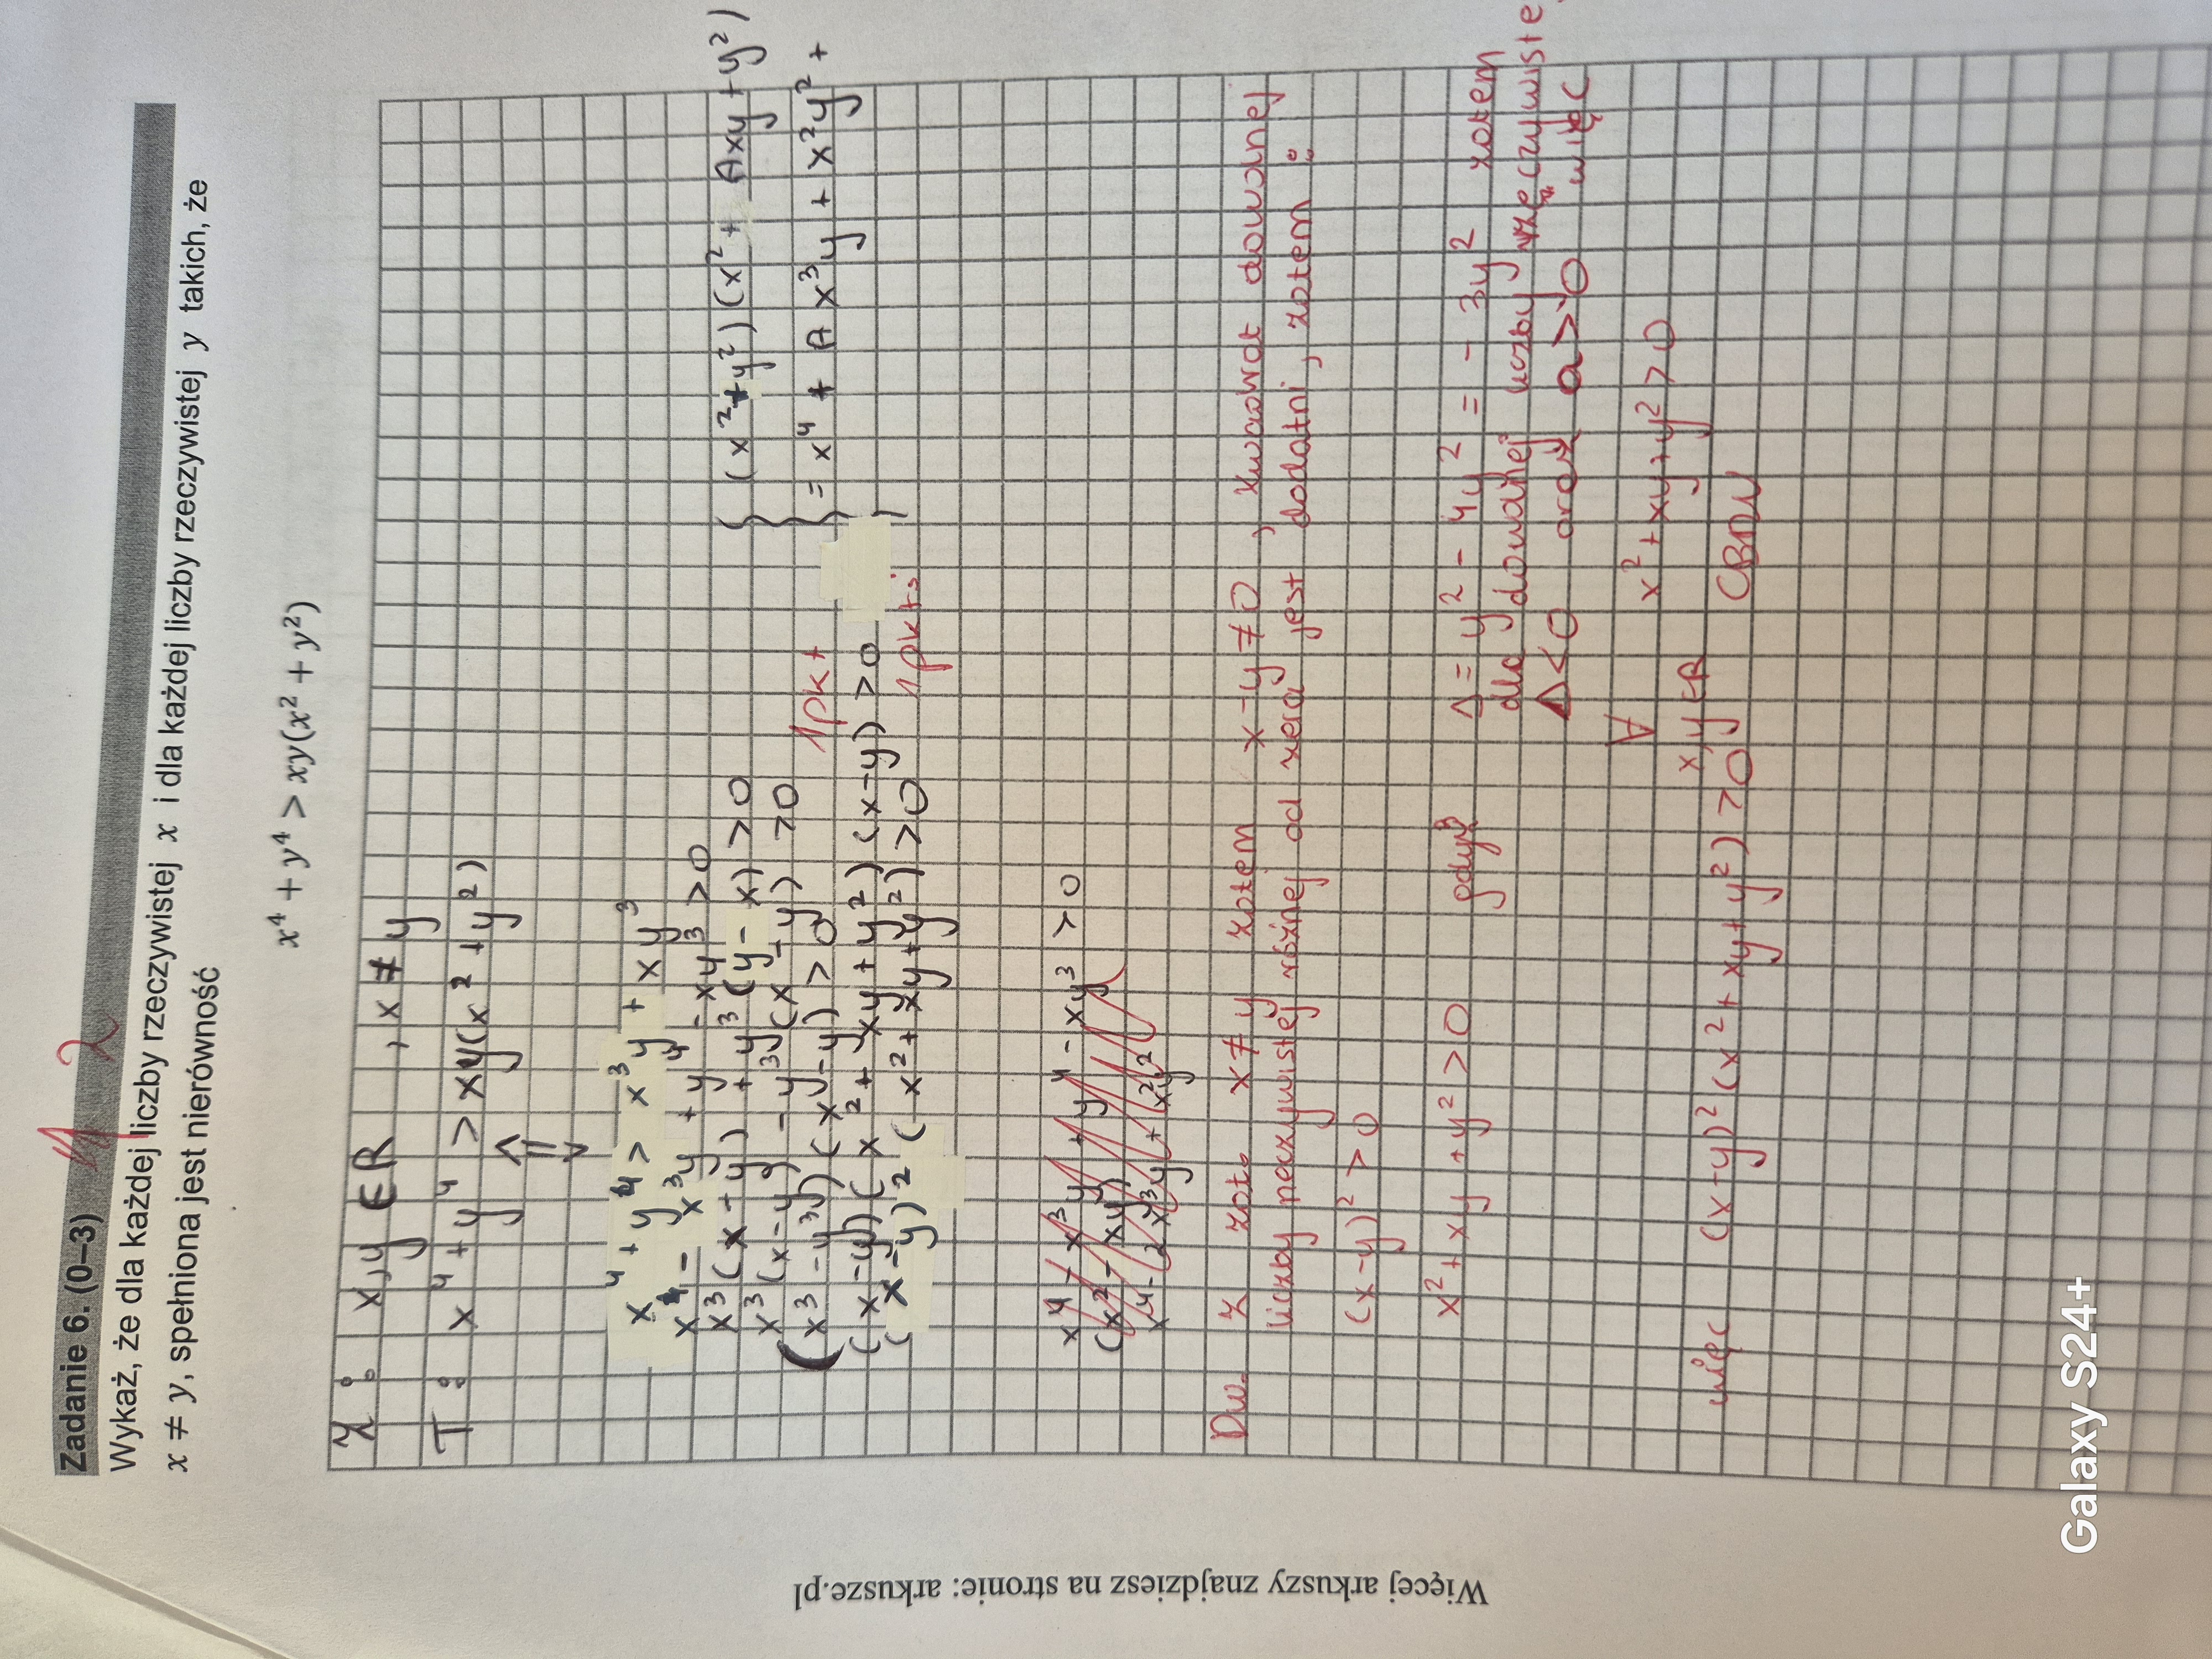 Zadanie 6. (0–3)
2
Wykaż, że dla każdej liczby rzeczywistej x i dla każdej liczby rzeczywistej y takich, że
x ≠ y, spełniona jest nierówność
x⁴ + y⁴ > xy(x² + y²)
Z: x,y ∈ R , x ≠ y
T: x⁴ + y⁴ > xy(x² + y²)
⇕
x⁴ + y⁴ > x³y + xy³
x⁴ - x³y + y⁴ - xy³ > 0
x³(x-y) + y³(y-x) > 0
x³(x-y) - y³(x-y) > 0
(x³-y³)(x-y) > 0
1pkt
(x-y)(x² + xy + y²)(x-y) > 0
(x-y)²(x² + xy + y²) > 0
1pkt
(x² + y²)(x² + Axy + y²)
= x⁴ + Ax³y + x²y² +
x⁴ - x³y + y⁴ - xy³ > 0
Dw. z zał. x ≠ y zatem x-y ≠ 0 , kwadrat dowolnej
liczby rzeczywistej różnej od zera jest dodatni, zatem:
(x-y)² > 0
x² + xy + y² > 0 gdyż Δ = y² - 4y² = - 3y² zatem
dla dowolnej liczby rzeczywistej
Δ < 0 oraz a > 0 więc
∀ x² + xy + y² > 0
x,y ∈ R
więc (x-y)²(x² + xy + y²) > 0 CBDU
Więcej arkuszy znajdziesz na stronie: arkusze.pl
Galaxy S24+